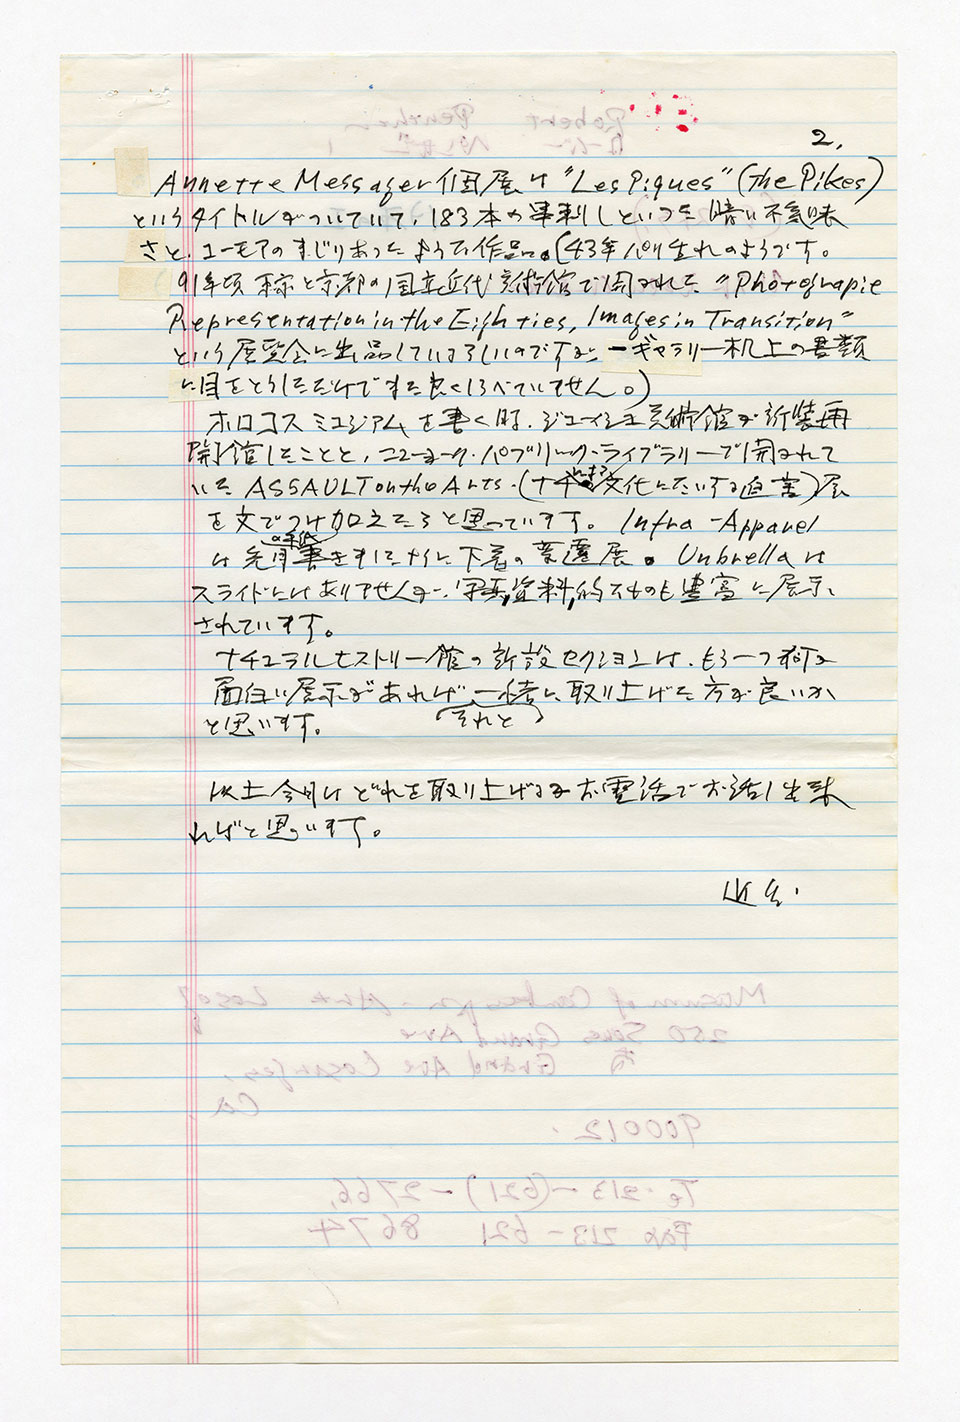 2.
Annette Messager 個展は "Les Piques" (The Pikes)
というタイトルがついていて、183本の串刺しといった暗い不気味
さと、ユーモアのまじりあったような作品。(43年パリ生れのようです。
91年頃 東京と京都の国立近代美術館で開かれた "Photograpie
Representation in the Eighties, Images in Transition"
という展覧会に出品しているらしいのですが、ーギャラリー机上の書類
に目をとうしただけでまだ良くしらべていません。)
ホロコスミュジアムを書く時、ジューイシュ美術館が新装再
開館したことと、ニューヨーク・パブリック・ライブラリーで開かれて
いた ASSAULT on the Arts.(ナチによる文化にたいする迫害)展
を文でつけ加えたらと思っています。 Infra-Apparel
は先月の手紙書きましたように下着の変遷展。 Unbrella は
スライドにはありませんが、写真,資料,的なものも豊富に展示
されています。
ナチュラルヒストリー館の新設セクションは、もう一つ何か
面白い展示があれば、それと一緒に取り上げた方が良いか
と思います。
以上今月はどれを取り上げるかお電話でお話し出来
ればと思います。
近么.
Robert
Museum of Contempor Art Los
250 Sous Grand Ave
Grand Ave Losanges,
CA
900012.
Te 213-(621)-2766,
Fax 213-621 8674